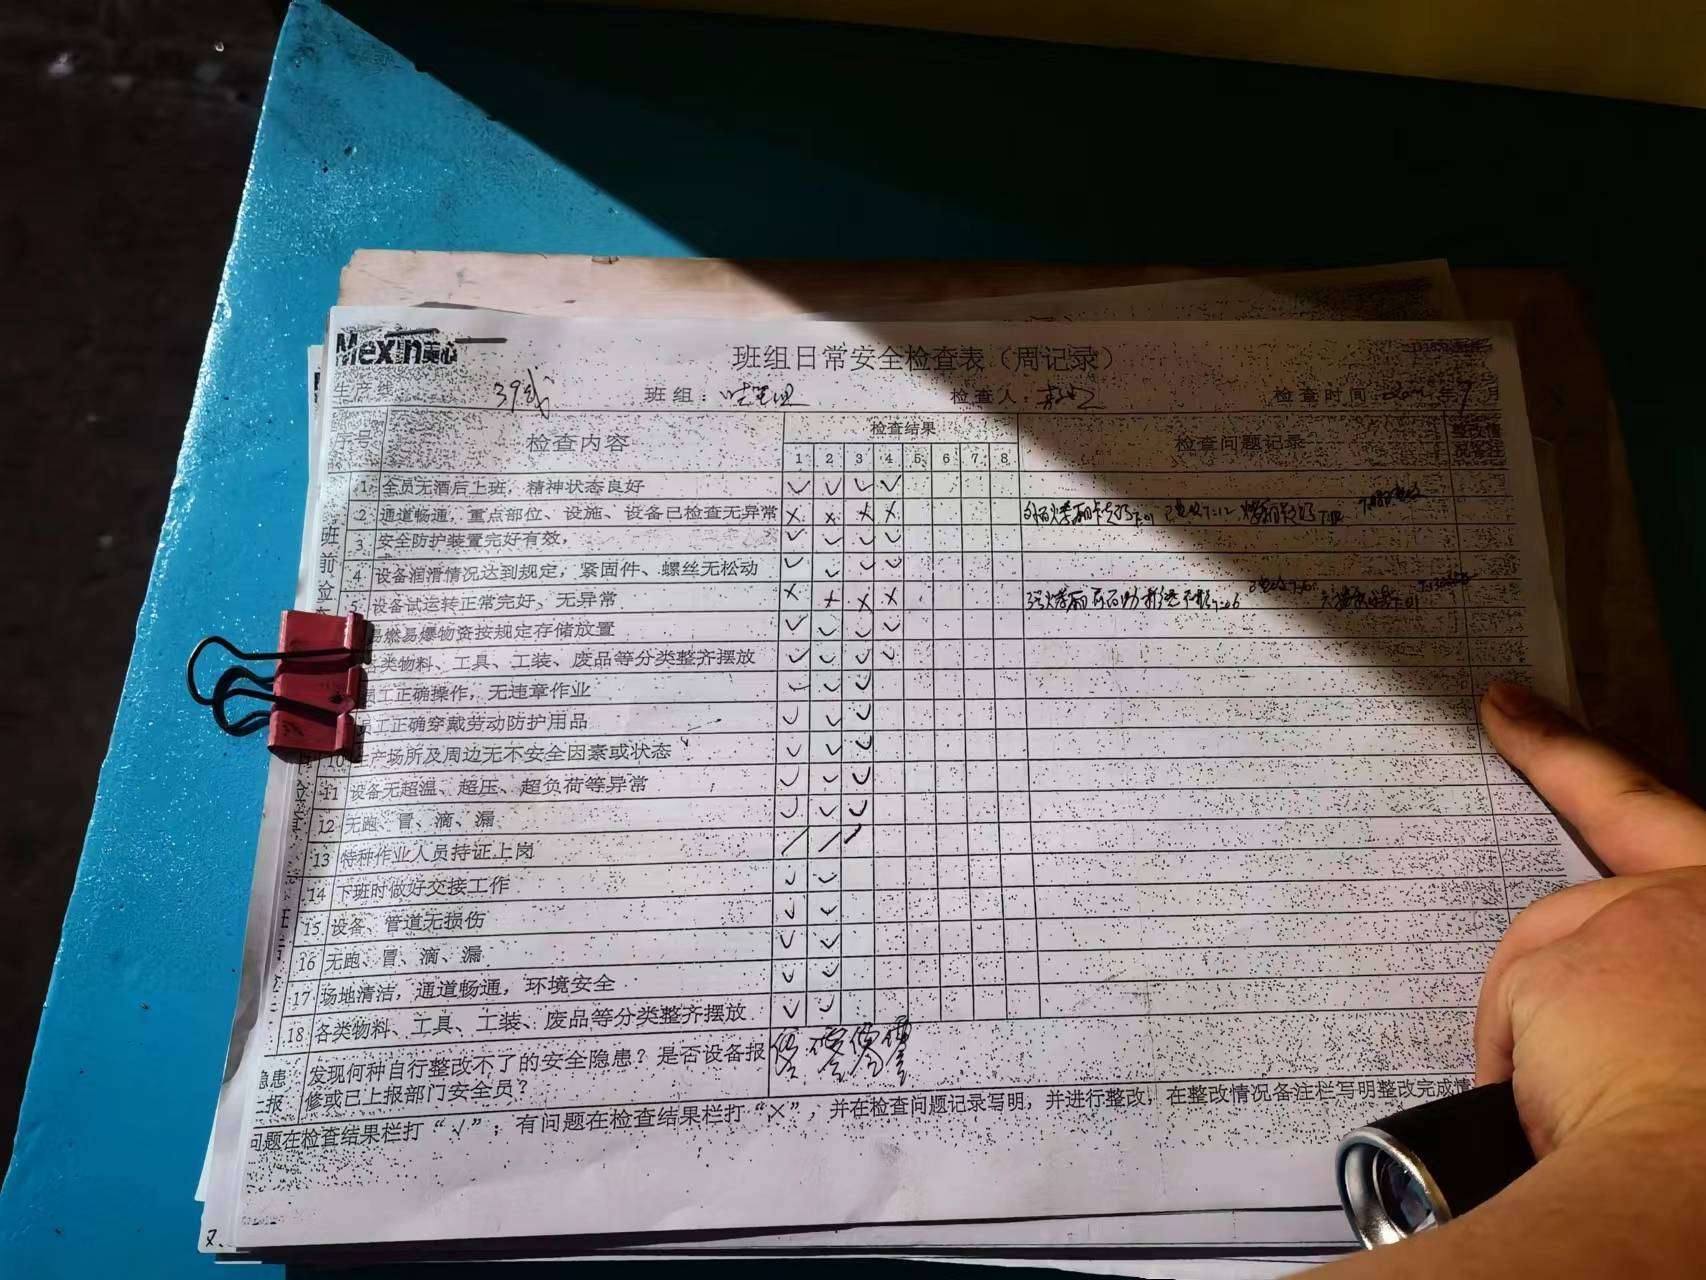 Mexin美心
班组日常安全检查表（周记录）
生产线 39线 班组： 检查人： 检查时间 年 9 月
序号 检查内容 检查结果 检查问题记录 整改情况备注
1 2 3 4 5 6 7 8
班前检
1 全员无酒后上班，精神状态良好 ✓ ✓ ✓ ✓
2 通道畅通，重点部位、设施、设备已检查无异常 × × × ×
3 安全防护装置完好有效， ✓ ✓ ✓ ✓
4 设备润滑情况达到规定，紧固件、螺丝无松动 ✓ ✓ ✓ ✓
5 设备试运转正常完好，无异常 × × × ×
易燃易爆物资按规定存储放置 ✓ ✓ ✓ ✓
类物料、工具、工装、废品等分类整齐摆放 ✓ ✓ ✓ ✓
工正确操作，无违章作业 ✓ ✓ ✓
工正确穿戴劳动防护用品 ✓ ✓ ✓
10 产场所及周边无不安全因素或状态 ✓ ✓ ✓
11 设备无超温、超压、超负荷等异常 ✓ ✓ ✓
12 无跑、冒、滴、漏 ✓ ✓ ✓
13 特种作业人员持证上岗 / / /
14 下班时做好交接工作 ✓ ✓
15 设备、管道无损伤 ✓ ✓
16 无跑、冒、滴、漏 ✓ ✓
17 场地清洁，通道畅通，环境安全 ✓ ✓
18 各类物料、工具、工装、废品等分类整齐摆放 ✓ ✓
隐患 发现何种自行整改不了的安全隐患？是否设备报
上报 修或已上报部门安全员？
问题在检查结果栏打“√”；有问题在检查结果栏打“×”，并在检查问题记录写明，并进行整改，在整改情况备注栏写明整改完成情